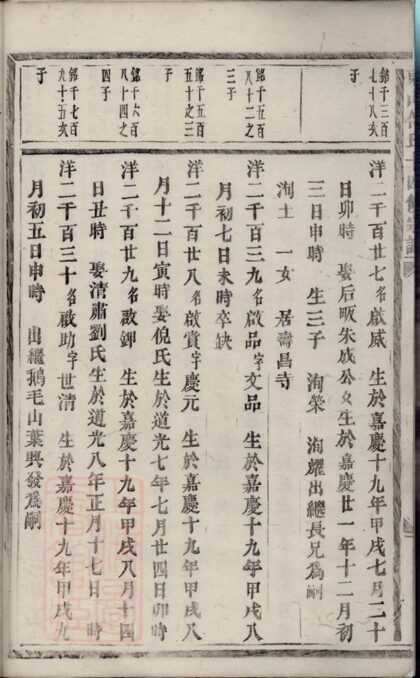 銘千三百
七十八亥
子
洋二千百廿七名啟威 生於嘉慶十九年甲戌七月二十
日卯時 娶后畈朱成公女生於嘉慶廿一年十二月初
三日申時 生三子 洵榮 洵耀出繼長兄爲嗣
洵土 一女 居壽昌寺
銘千五百
八十二亥
三子
洋二千百三九名啟品字文品 生於嘉慶十九年甲戌八
月初七日未時卒缺
銘千五百
五十之三
子
洋二千百廿八名啟賓字慶元 生於嘉慶十九年甲戌八
月十二日寅時娶倪氏生於道光七年七月廿四日卯時
銘千六百
八十四之
四子
洋二千百廿九名啟鉀 生於嘉慶十九年甲戌八月十四
日丑時 娶清肅劉氏生於道光八年正月十七日 時
銘千七百
九十五亥
子
洋二千百三十名啟助字世清 生於嘉慶十九年甲戌九
月初五日申時 出繼鵝毛山葉興發爲嗣